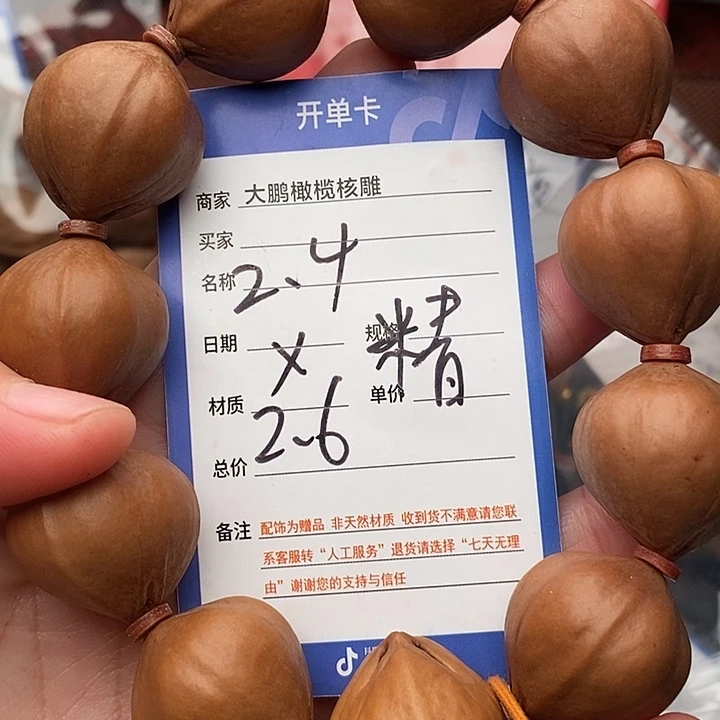 开单卡
商家 大鹏橄榄核雕
买家
名称 2.4
日期 x 规格 精
材质 单价
2.6
总价
备注 配饰为赠品 非天然材质 收到货不满意请您联
系客服转“人工服务”退货请选择“七天无理
由”谢谢您的支持与信任